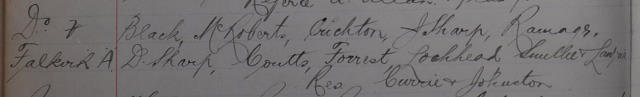 Do v Black, McRoberts, Crichton, J Sharp, Ramage.
Falkirk A. D. Sharp, Coutts, Forrest, Lochhead Smellie &
Res Currie & Johnston